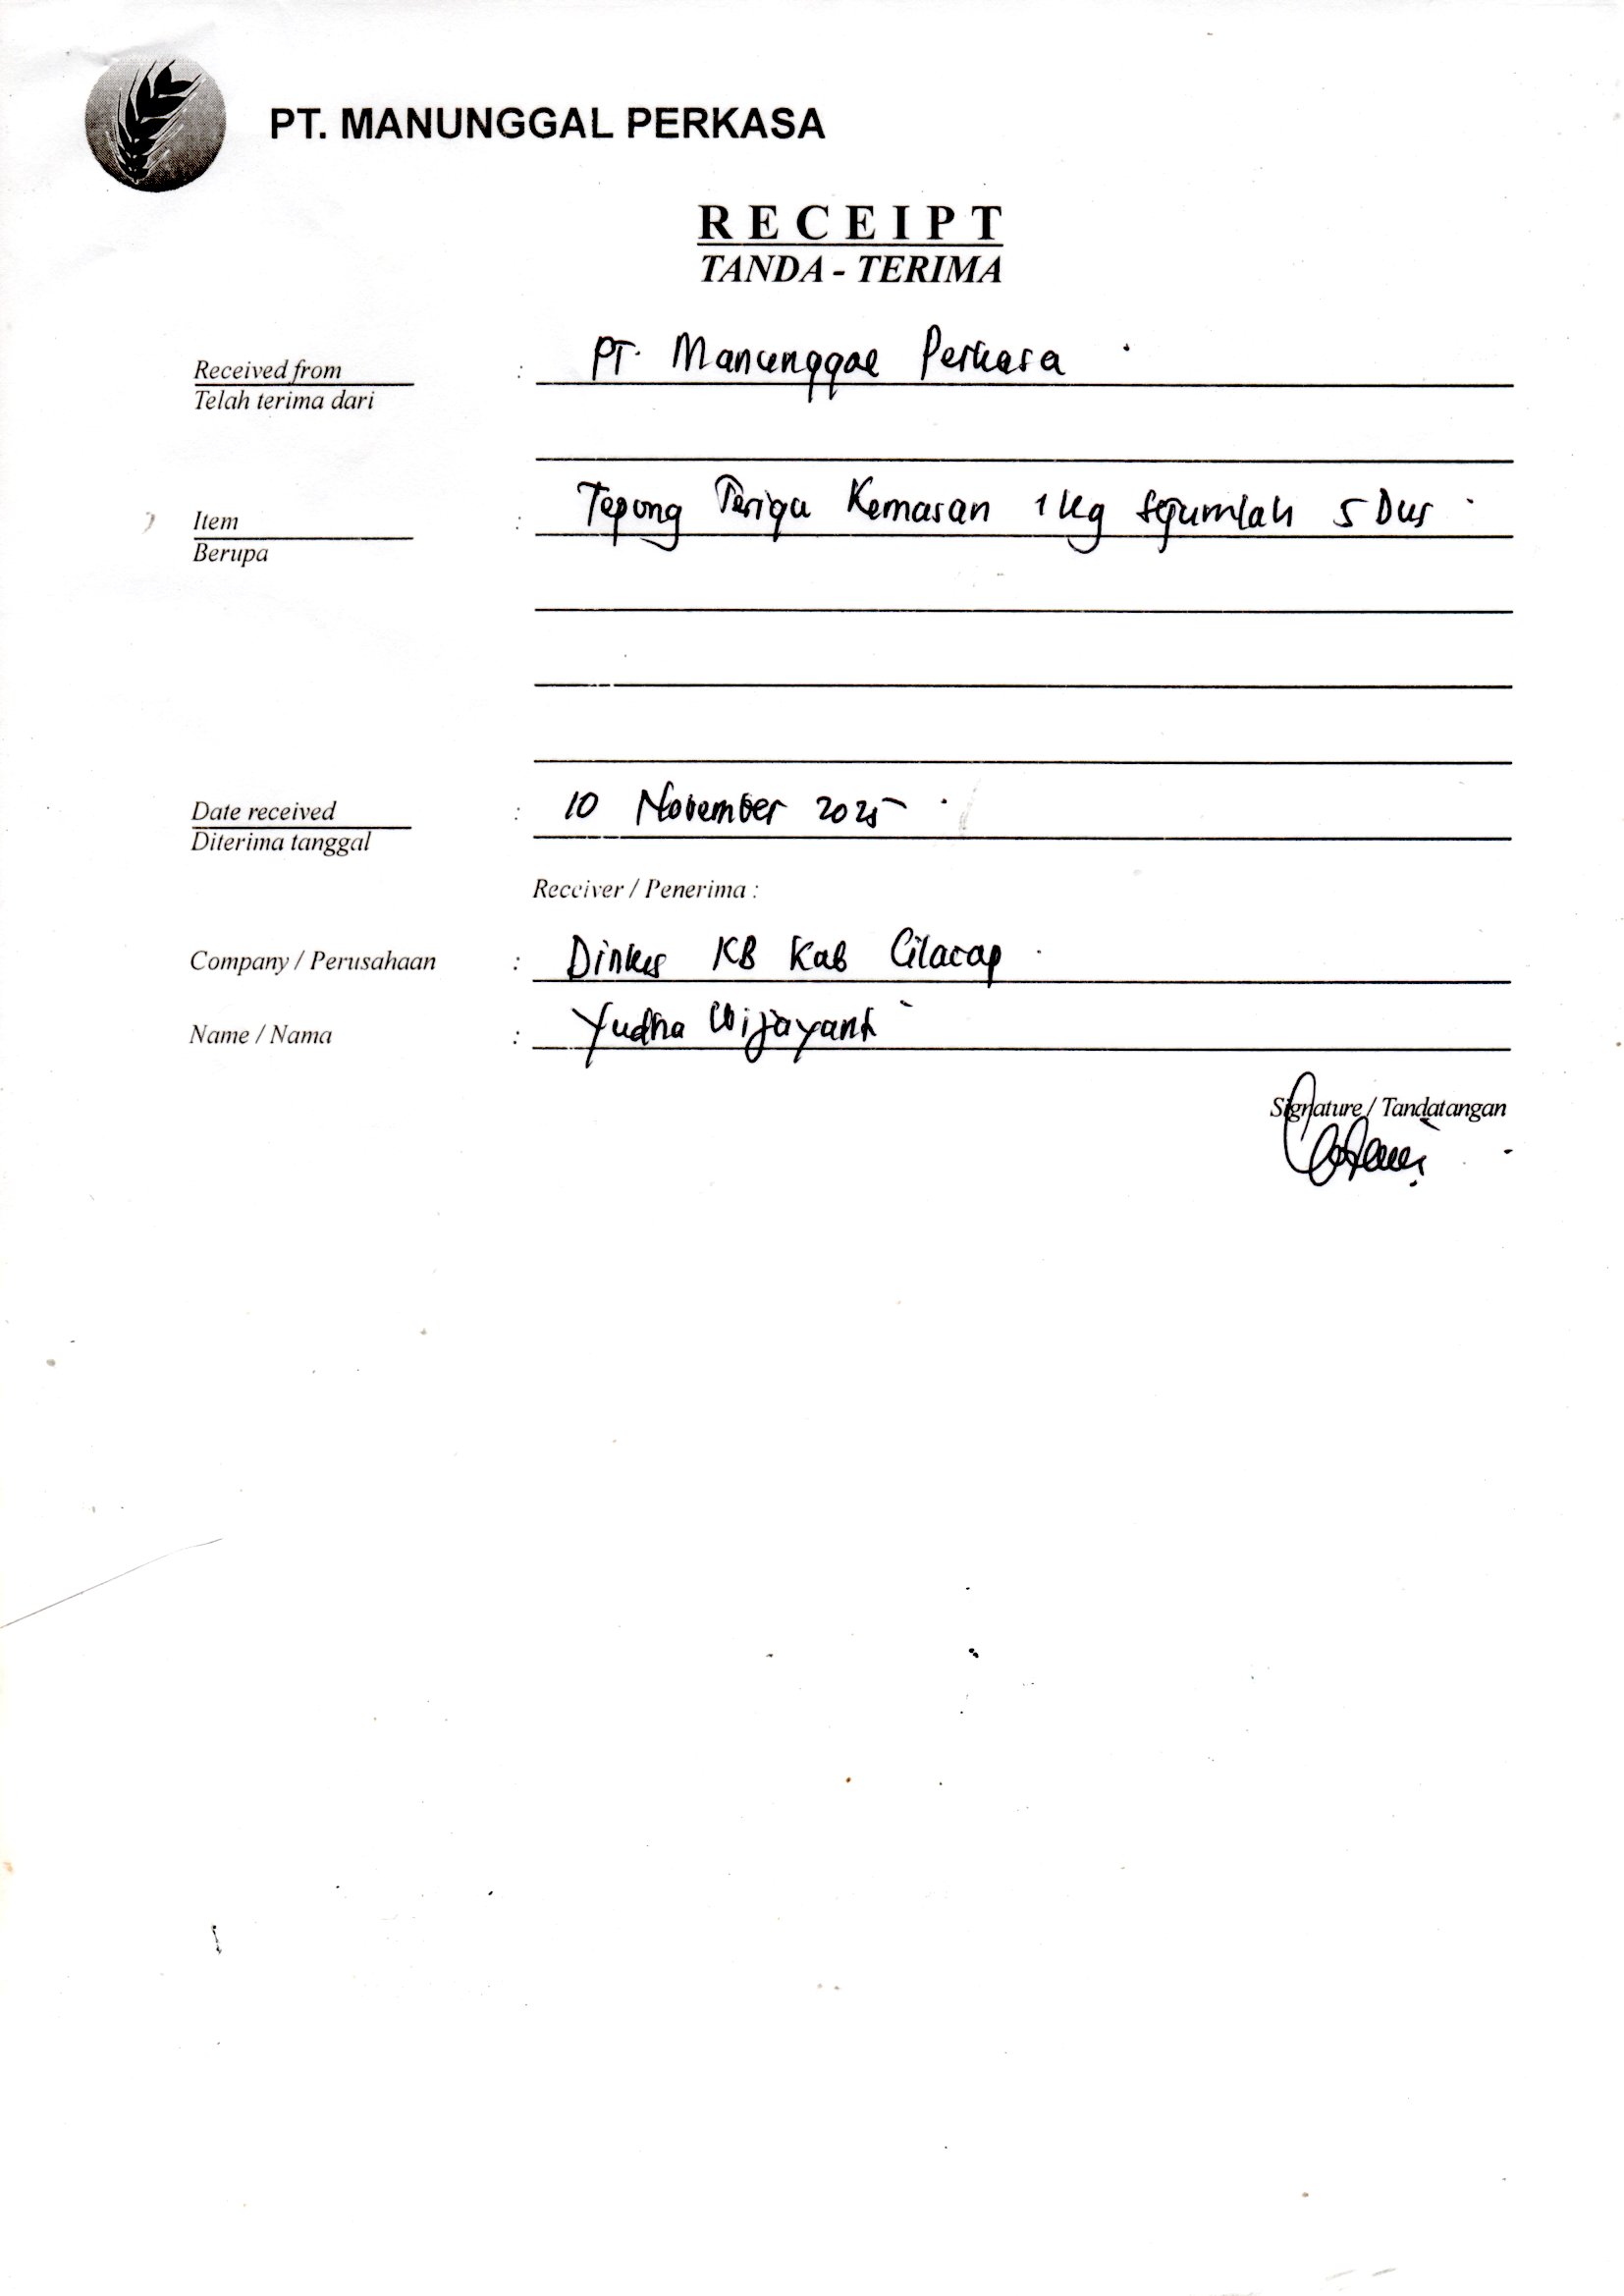 PT. MANUNGGAL PERKASA
RECEIPT
TANDA - TERIMA
Received from : PT. Manunggal Perkasa
Telah terima dari
Item : Tepung Terigu Kemasan 1 kg sejumlah 5 Dus
Berupa
Date received : 10 November 2025
Diterima tanggal
Receiver / Penerima :
Company / Perusahaan : Dinkes KB Kab Cilacap
Name / Nama : Yudha Wijayanti
Signature / Tandatangan